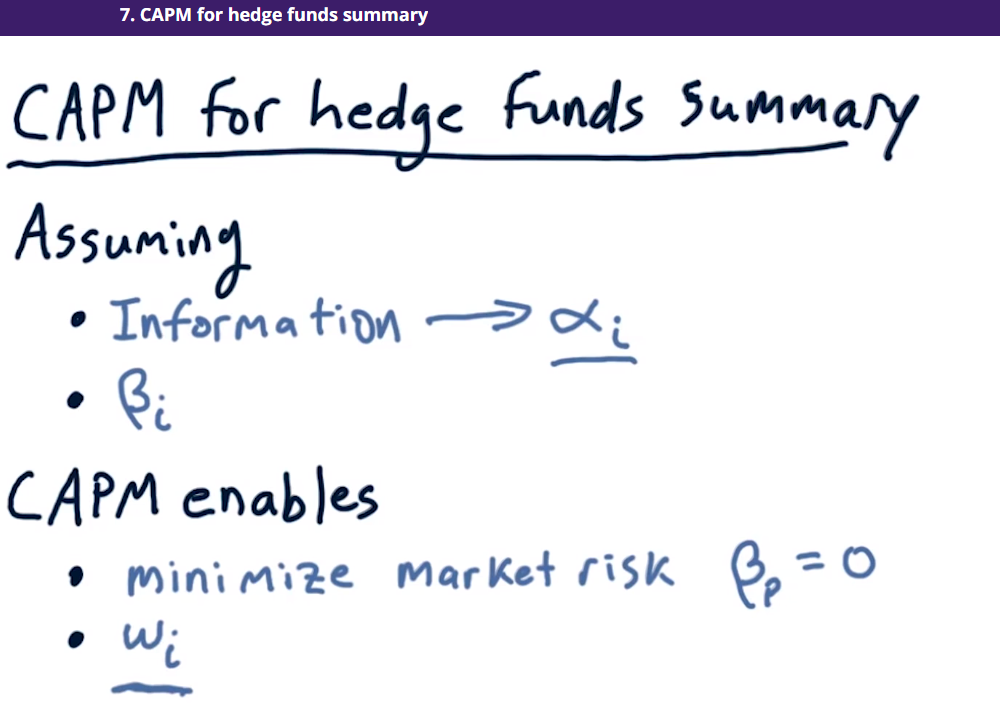 7. CAPM for hedge funds summary
CAPM for hedge funds summary
Assuming
• Information → αi
• βi
CAPM enables
• minimize market risk βp = 0
• wi